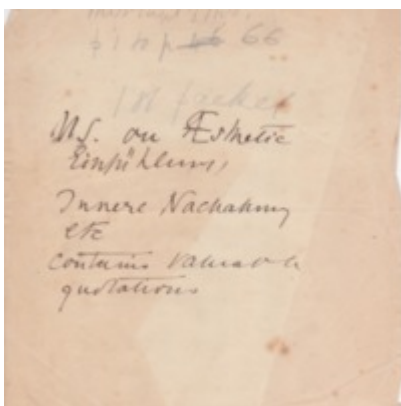 p 66
1st packet
MS. on Æsthetic
Einfühlung,
Innere Nachahmung
etc
contains valuable
quotations